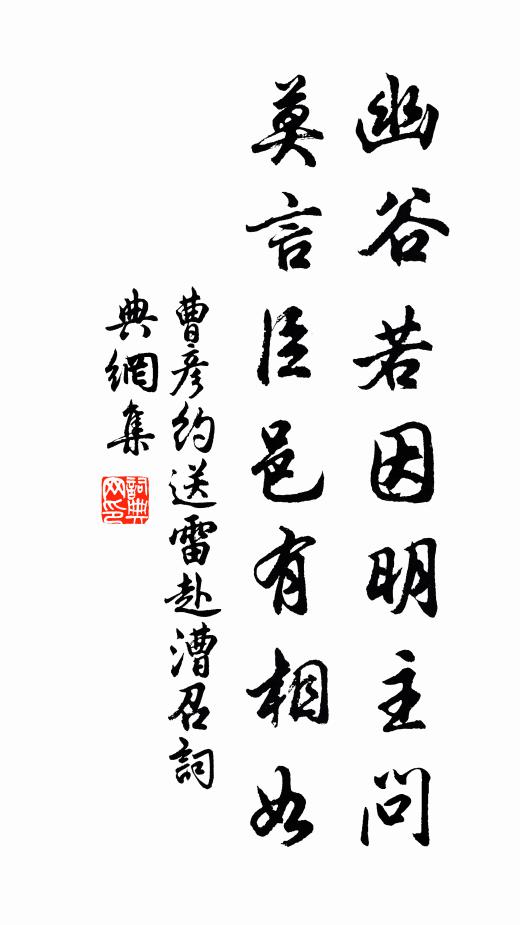 幽谷若因明主問
莫言臣邑有相如
曹彦約送雷赴漕召詞
典網集
詞典网印